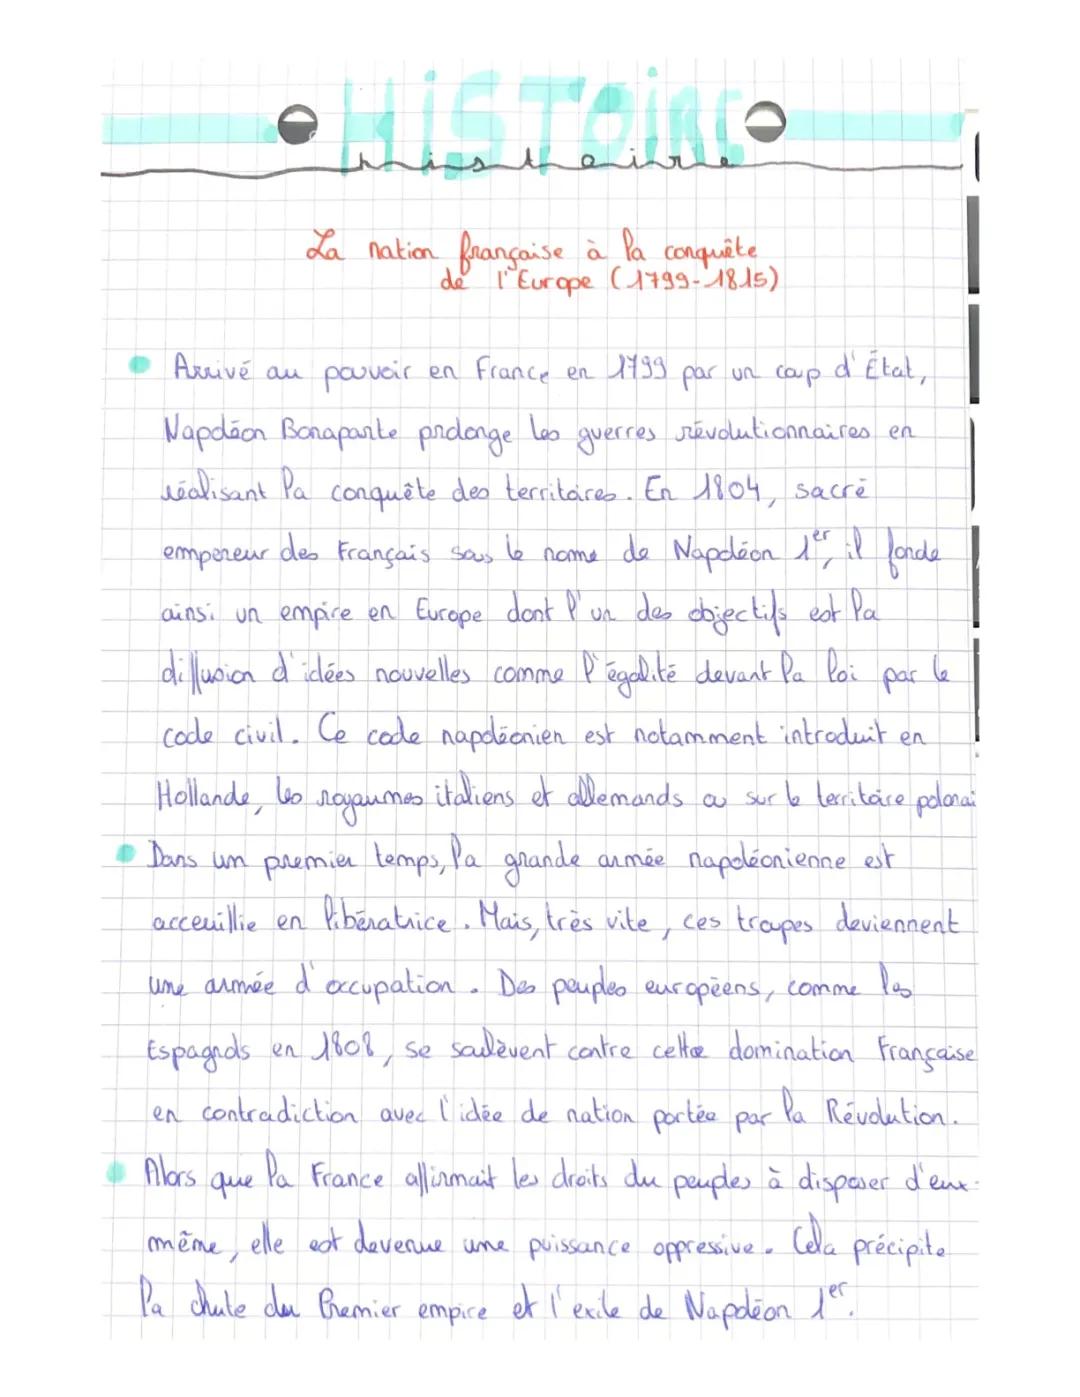 HiSTOiRE
histoire
La nation française à la conquête
de l'Europe (1799-1815)
Arrivé au pouvoir en France en 1799 par un coup d'État,
Napoléon Bonaparte prolonge les guerres révolutionnaires en
réalisant la conquête des territoires. En 1804, sacré
empereur des Français sous le nome de Napoléon 1er, il fonde
ainsi un empire en Europe dont l'un des objectifs est la
diffusion d'idées nouvelles comme l'égalité devant la loi par le
code civil. Ce code napoléonien est notamment introduit en
Hollande, les royaumes italiens et allemands ou sur le territoire polonai
Dans un premier temps, la grande armée napoléonienne est
acceuillie en libératrice. Mais, très vite, ces troupes deviennent
une armée d'occupation. Des peuples européens, comme les
Espagnols en 1808, se soulèvent contre cette domination Française
en contradiction avec l'idée de nation portée par la Révolution.
Alors que la France affirmait les droits du peuples à disposer d'eux-
même, elle est devenue une puissance oppressive. Cela précipite
la chute du Premier empire et l'exile de Napoléon 1er.